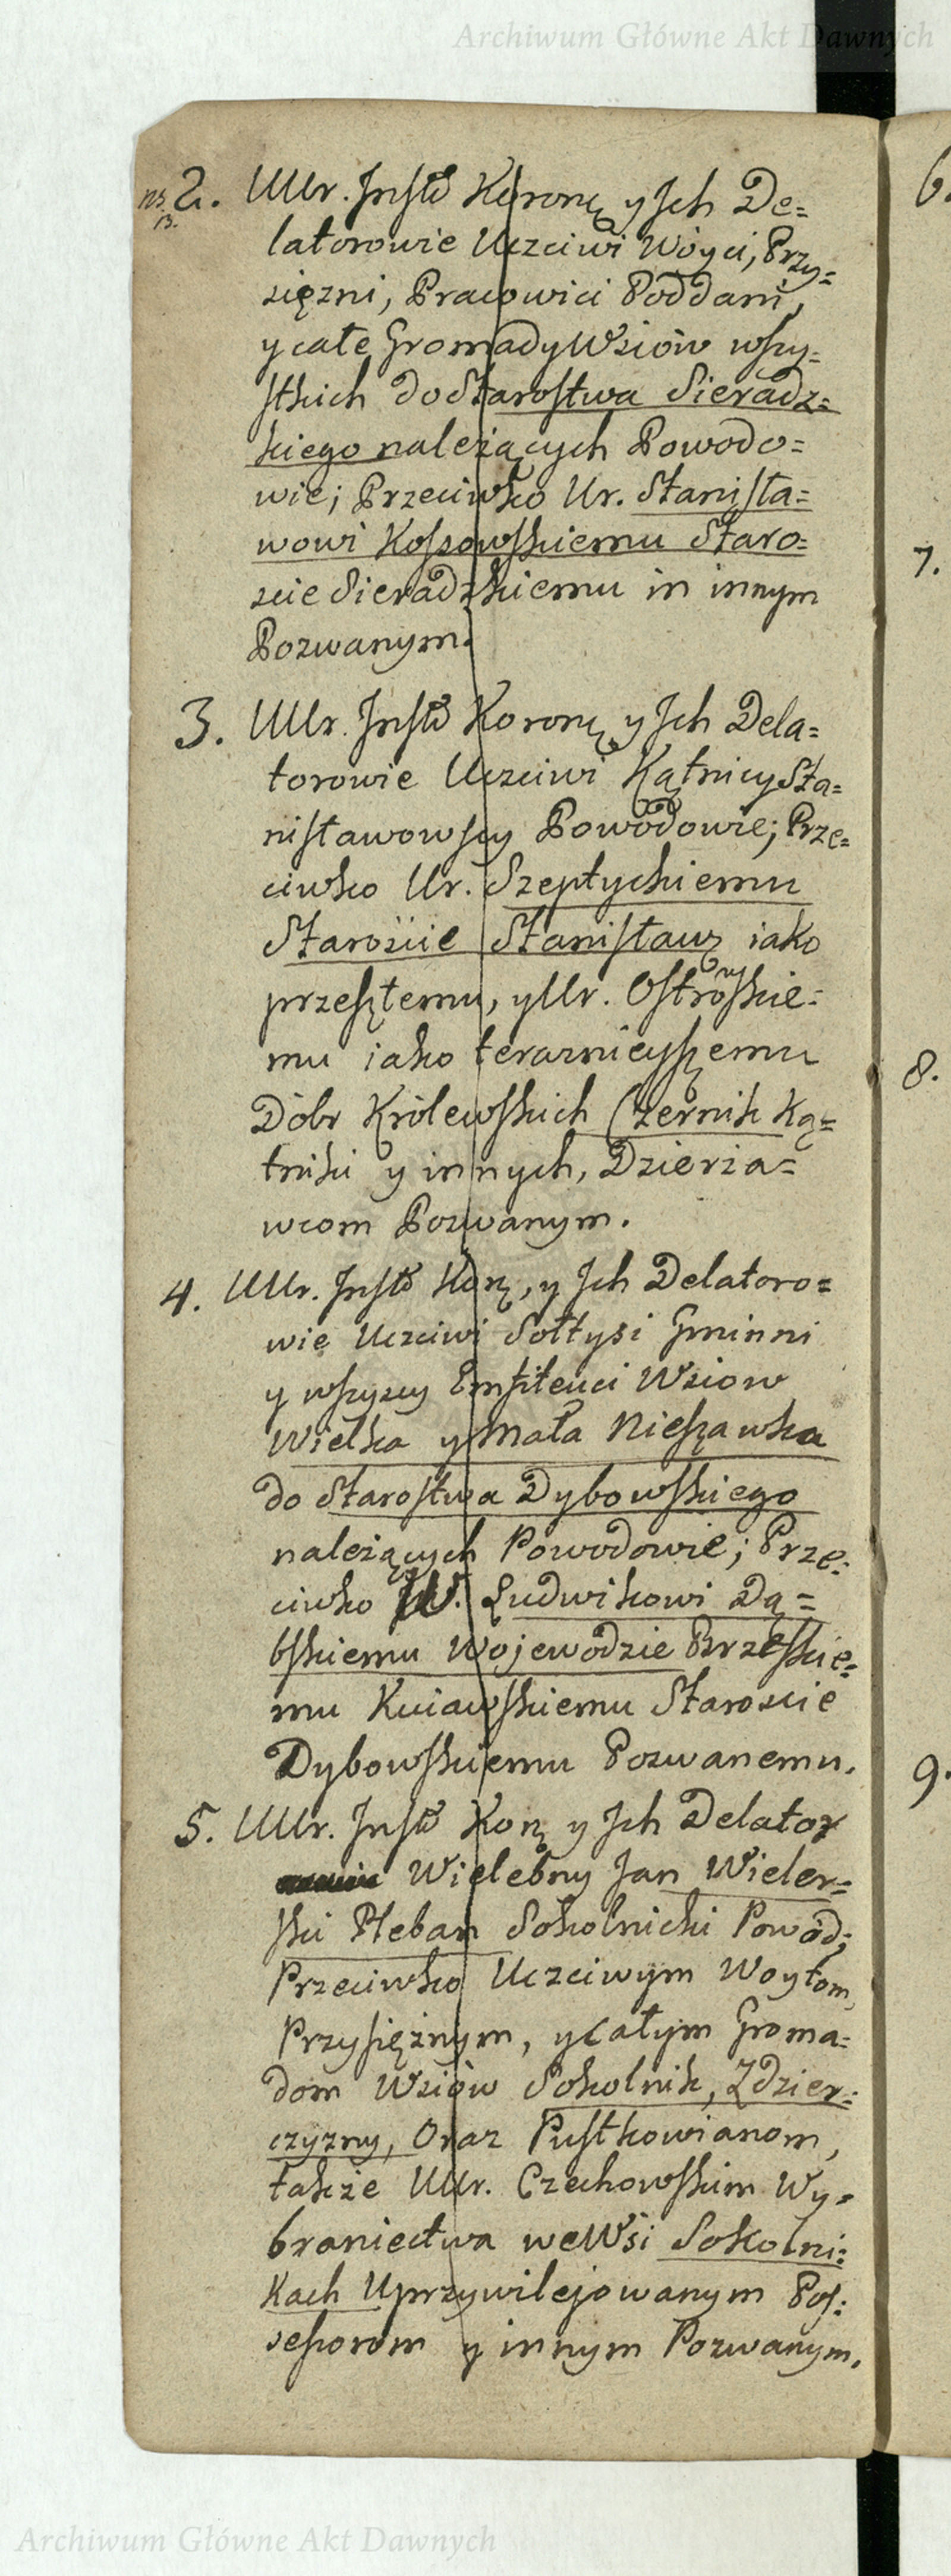 Archiwum Główne Akt Dawnych
2. UUr. Instō Koronę y Ich De=
latorowie Uczciwi Woyci, Przy=
sięzni, Pracowici Poddani,
y całe Gromady Wsiów wszy=
stkich do Starostwa Sieradz=
kiego należących Powodo=
wie; Przeciwko Ur. Stanisła=
wowi Kossowskiemu Staro=
scie Sieradzkiemu in innym
Pozwanym.
3. UUr. Instō Koronę y Ich Dela=
torowie Uczciwi Kątnicy Sta=
nisławowscy Powodowie; Prze=
ciwko Ur. Szeptyckiemu
Starościе Stanisławę iako
przeszłemu, y Ur. Ostrowskie=
mu iako teraznieyszemu
Dóbr Królewskich Czernik Ką=
tniki y innych, Dzierża=
wcom Pozwanym.
4. UUr. Instō Korę, y Ich Delatoro=
wie Uczciwi Sołtysi Gminni
y wszyscy Emfiteuci Wsiow
Wielka y Mała Nieszawka
do Starostwa Dybowskiego
należących Powodowie; Prze=
ciwko W. Ludwikowi Dą=
bskiemu Wojewodzie Brzeskie=
mu Kuiawskiemu Staroscie
Dybowskiemu Pozwanemu.
5. UUr. Instō Korę y Ich Delator
Wielebny Jan Wieler=
ski Pleban Sokolnicki Powód;
Przeciwko Uczciwym Woytom,
Przysiężnym, y całym Groma=
dom Wsiów Sokolnik, Zdzier=
czyzny, Oraz Pustkowianom,
także UUr. Czechowskim Wy=
braniectwa we Wsi Sokolni=
kach Uprzywilejowanym Pos=
sessorom y innym Pozwanym.
6.
7.
8.
9.
Archiwum Główne Akt Dawnych